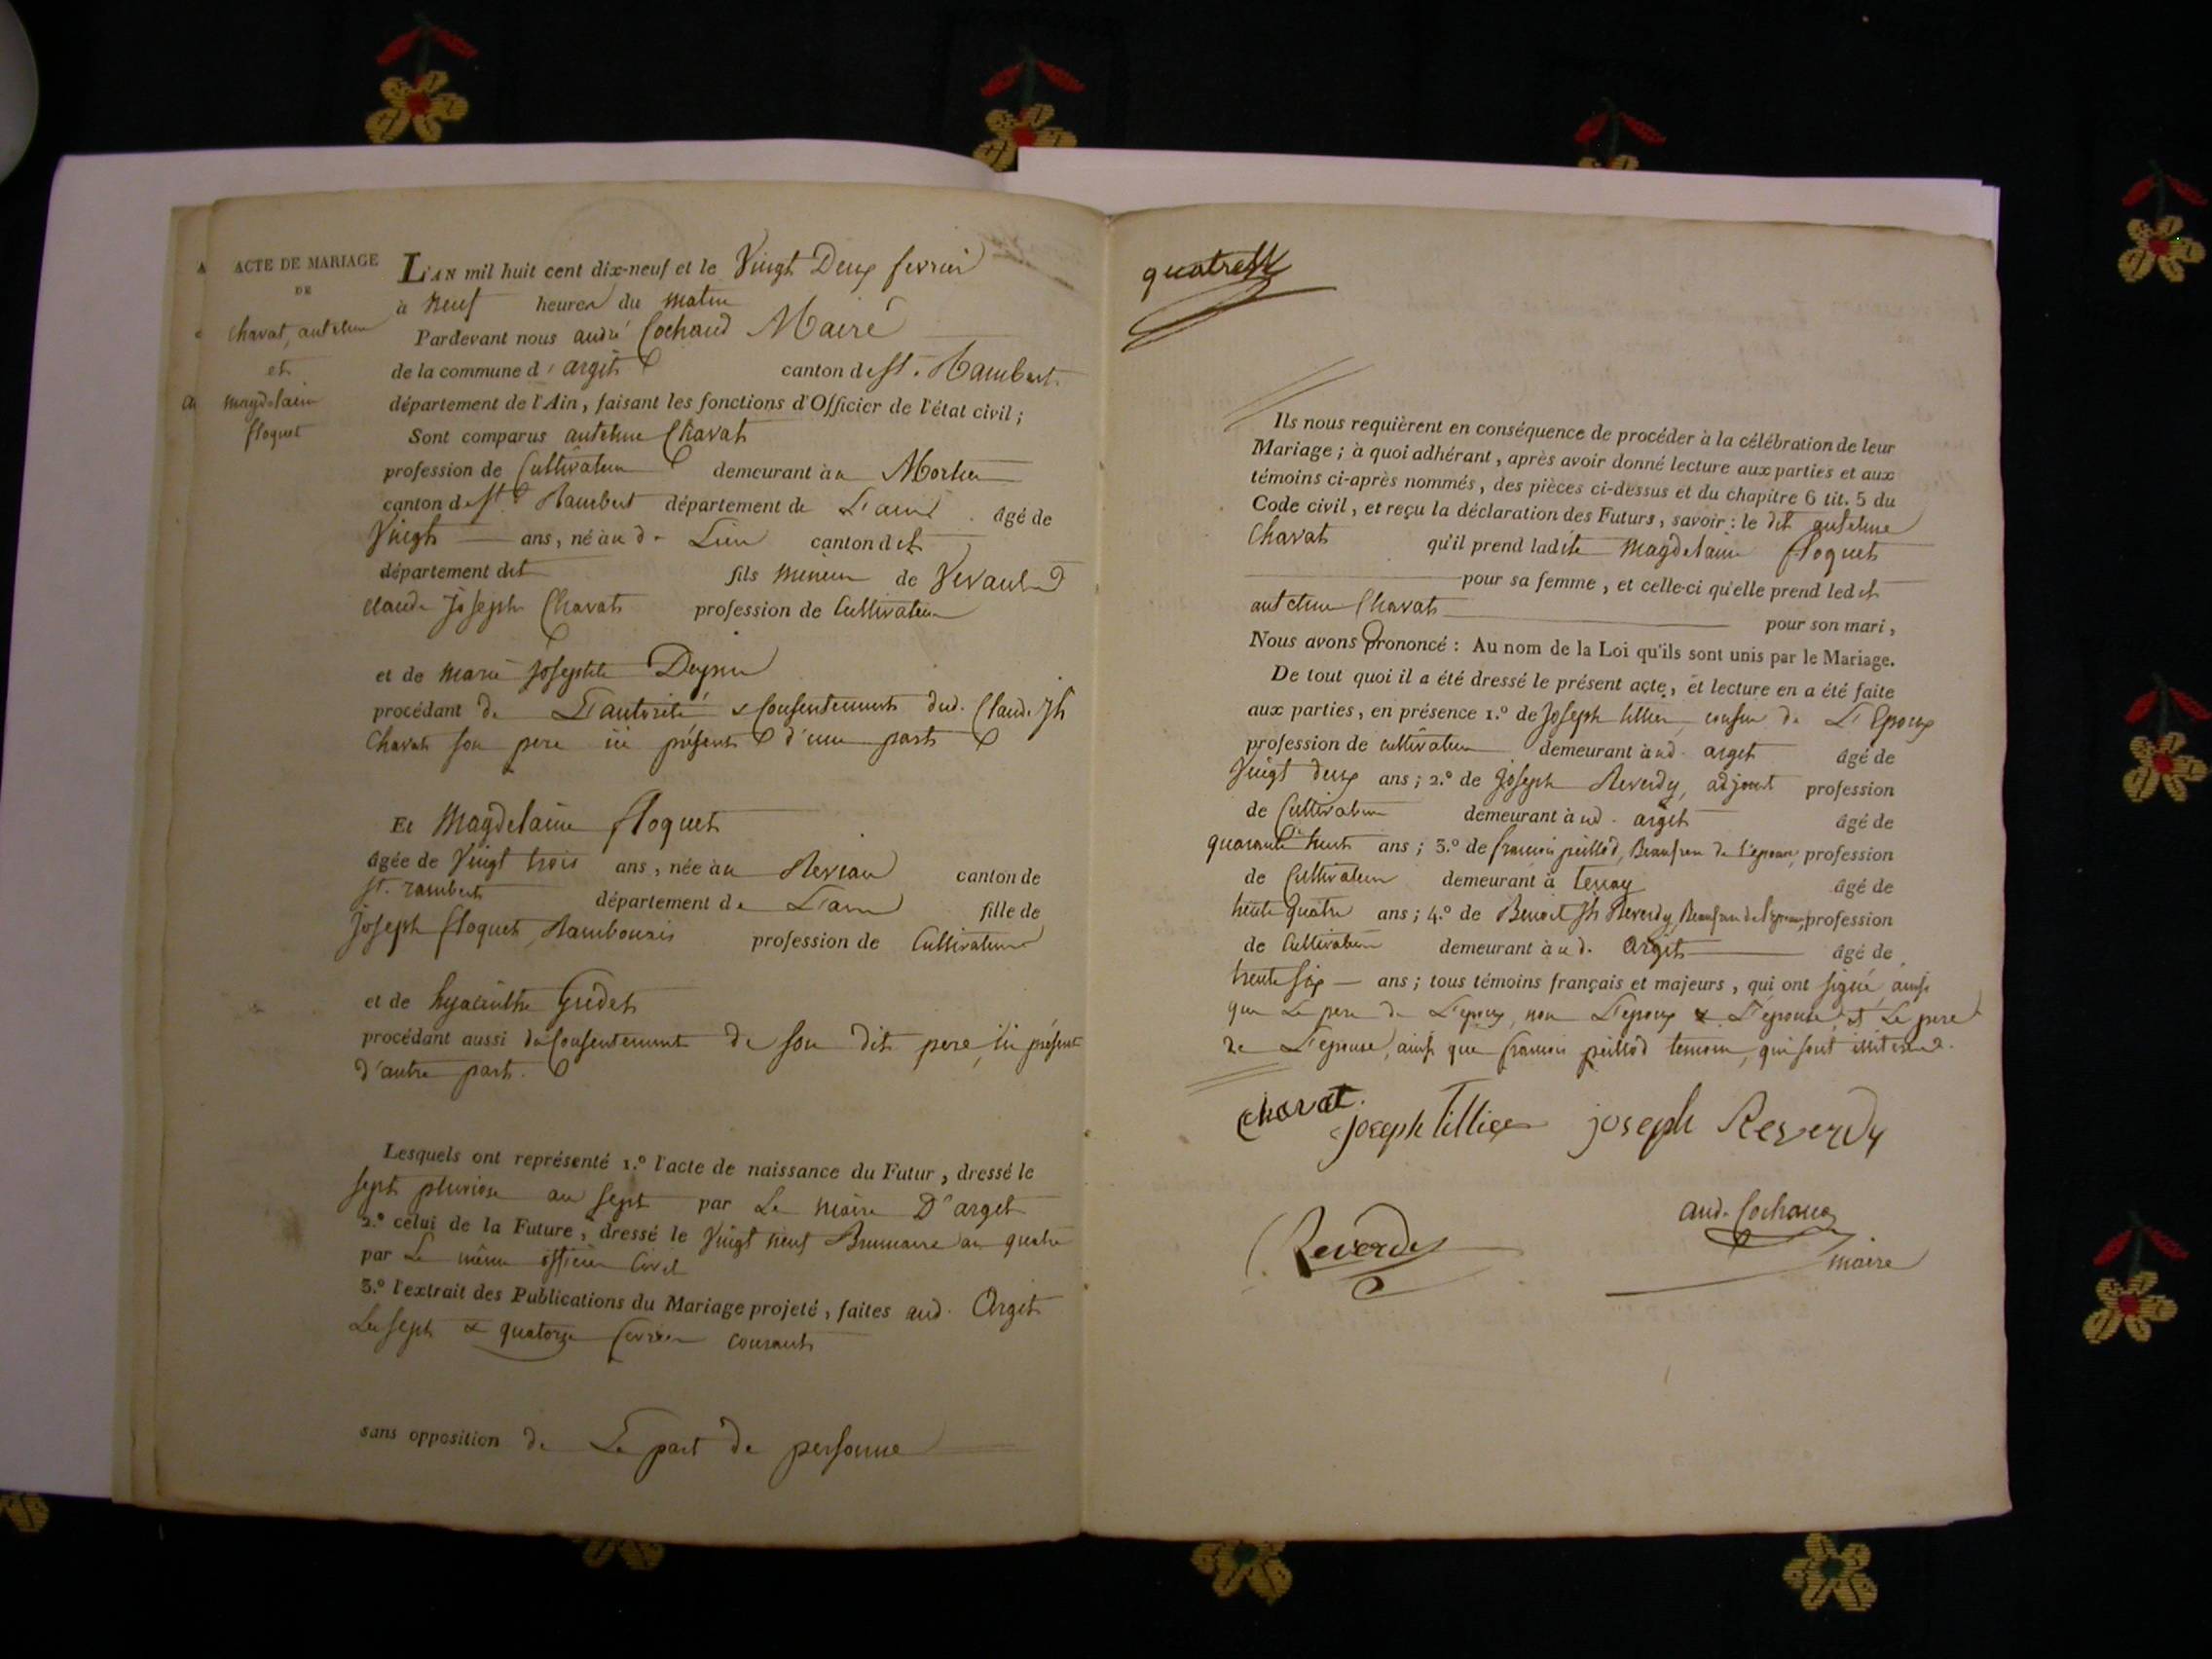 ACTE DE MARIAGE
DE
Chavat, antelme
et
magdelaine
floquet
L'AN mil huit cent dix-neuf et le Vingt Deux fevrier
à Neuf heures du matin
Pardevant nous andré Cochaud Maire
de la commune d'argit canton de St. Rambert
département de l'Ain, faisant les fonctions d'Officier de l'état civil;
Sont comparus antelme Chavat
profession de Cultivateur demeurant au Mortier
canton de St. Rambert département de L'ain âgé de
Vingt ans, né au d. Lieu canton dit
département dit fils mineur de
claude Joseph Chavat profession de Cultivateur
et de marie josephte
procédant de L'autorité & Consentement dud. Claude Jh
Chavat son pere ici présent d'une part
Et Magdelaine floquet
âgée de Vingt trois ans, née au canton de
St. rambert département de L'ain fille de
Joseph floquet profession de Cultivateur
et de hyacinthe Gudet
procédant aussi du Consentement de son dit pere, ici présent
d'autre part.
Lesquels ont représenté 1.º l'acte de naissance du Futur, dressé le
sept pluviose an sept par Le maire D'argit
2.º celui de la Future, dressé le Vingt neuf Brumaire an quatre
par Le même officier Civil
3.º l'extrait des Publications du Mariage projeté, faites aud. Argit
Les sept & quatorze fevrier courant
sans opposition de La part de personne
Ils nous requièrent en conséquence de procéder à la célébration de leur
Mariage; à quoi adhérant, après avoir donné lecture aux parties et aux
témoins ci-après nommés, des pièces ci-dessus et du chapitre 6 tit. 5 du
Code civil, et reçu la déclaration des Futurs, savoir: le dit antelme
Chavat qu'il prend ladite Magdelaine floquet
pour sa femme, et celle-ci qu'elle prend ledit
antelme Chavat pour son mari,
Nous avons prononcé: Au nom de la Loi qu'ils sont unis par le Mariage.
De tout quoi il a été dressé le présent acte, et lecture en a été faite
aux parties, en présence 1.º de Joseph tillier, cousin de L'Epoux
profession de cultivateur demeurant aud. argit âgé de
Vingt deux ans; 2.º de Joseph Reverdy, adjoint profession
de Cultivateur demeurant aud. argit âgé de
quarante huit ans; 3.º de francois peillod, Beaufrere de L'epouse, profession
de Cultivateur demeurant à tenay âgé de
trente quatre ans; 4.º de Benoit Jh Reverdy, Beaufrere de l'epoux, profession
de Cultivateur demeurant aud. Argit âgé de
trente six ans; tous témoins français et majeurs, qui ont signé, ainsi
que Le pere de L'epoux, non L'epoux & L'epouse, et Le pere
de L'epouse, ainsi que francois peillod temoin, qui sont
chavat.
joseph tillier joseph Reverdy
Reverdy
and. Cochaud
maire